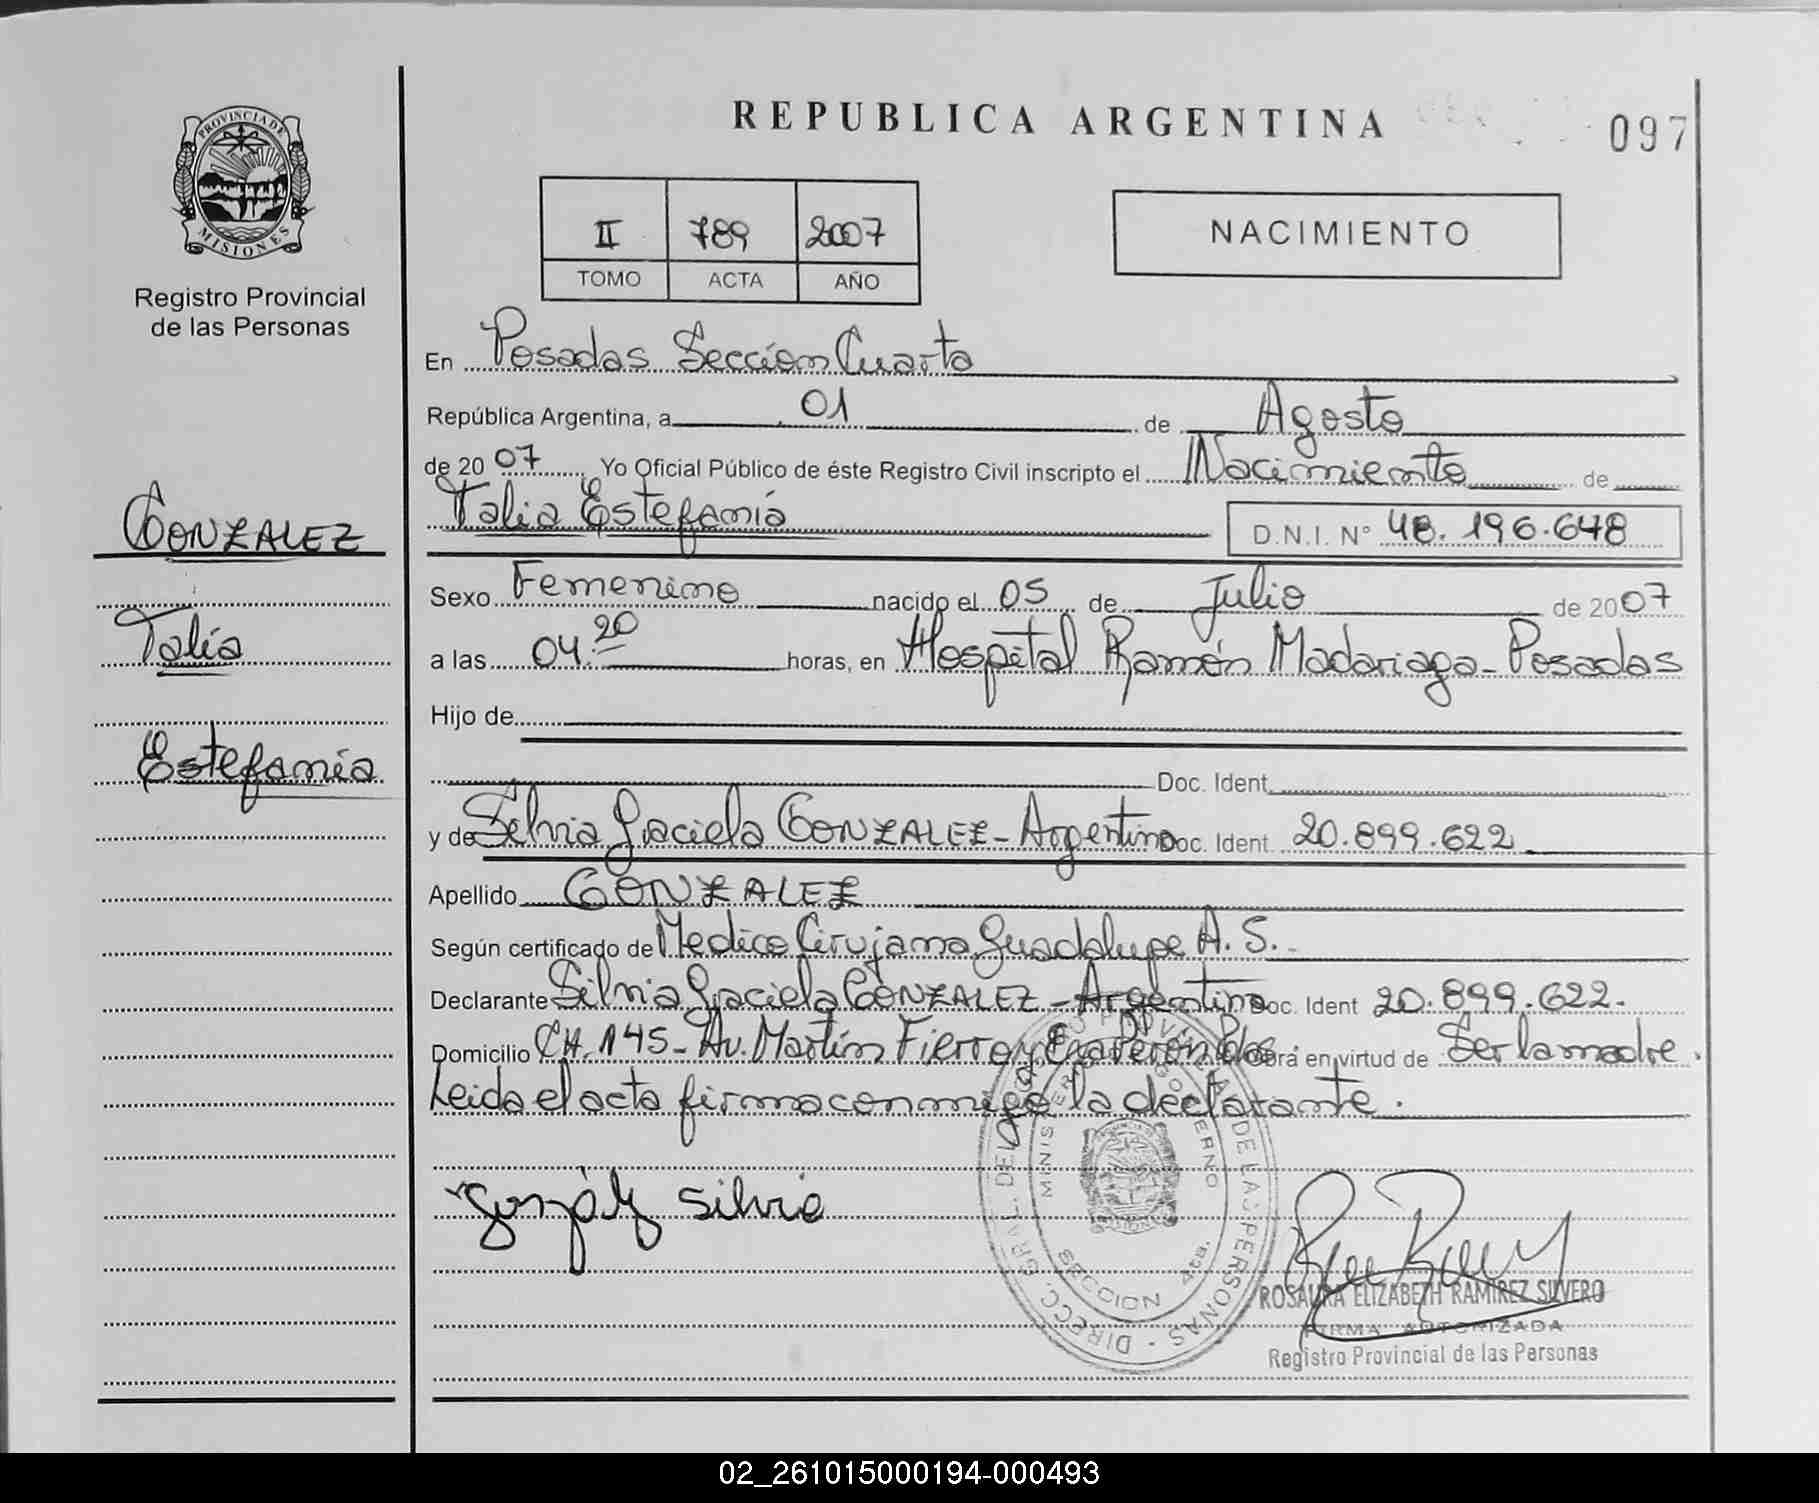 REPUBLICA ARGENTINA
097
PROVINCIA DE
MISIONES
Registro Provincial
de las Personas
II 789 2007
TOMO ACTA AÑO
NACIMIENTO
En Posadas Sección Cuarta
República Argentina, a 01 de Agosto
de 20 07 Yo Oficial Público de éste Registro Civil inscripto el Nacimiento de
Talia Estefanía
D.N.I. Nº 48.196.648
GONZALEZ
Talía
Estefanía
Sexo Femenino nacido el 05 de Julio de 2007
a las 04.20 horas, en Hospital Ramón Madariaga - Posadas
Hijo de
Doc. Ident
y de Silvia Graciela GONZALEZ - Argentina Doc. Ident 20.899.622
Apellido GONZALEZ
Según certificado de Medico Cirujana Guadalupe A. S.
Declarante Silvia Graciela GONZALEZ - Argentina Doc. Ident 20.899.622.
Domicilio CH. 145 - Av. Martín Fierro y Eva Perón Pdas. Obra en virtud de Ser la madre.
Leida el acta firma conmigo la declarante.
Silvia
DIRECC. GRAL. DEL REGISTRO PROVINCIAL DE LAS PERSONAS
MINISTERIO GOBIERNO
SECCION 4ta.
ROSAURA ELIZABETH RAMIREZ SILVERO
FIRMA AUTORIZADA
Registro Provincial de las Personas
02_261015000194-000493